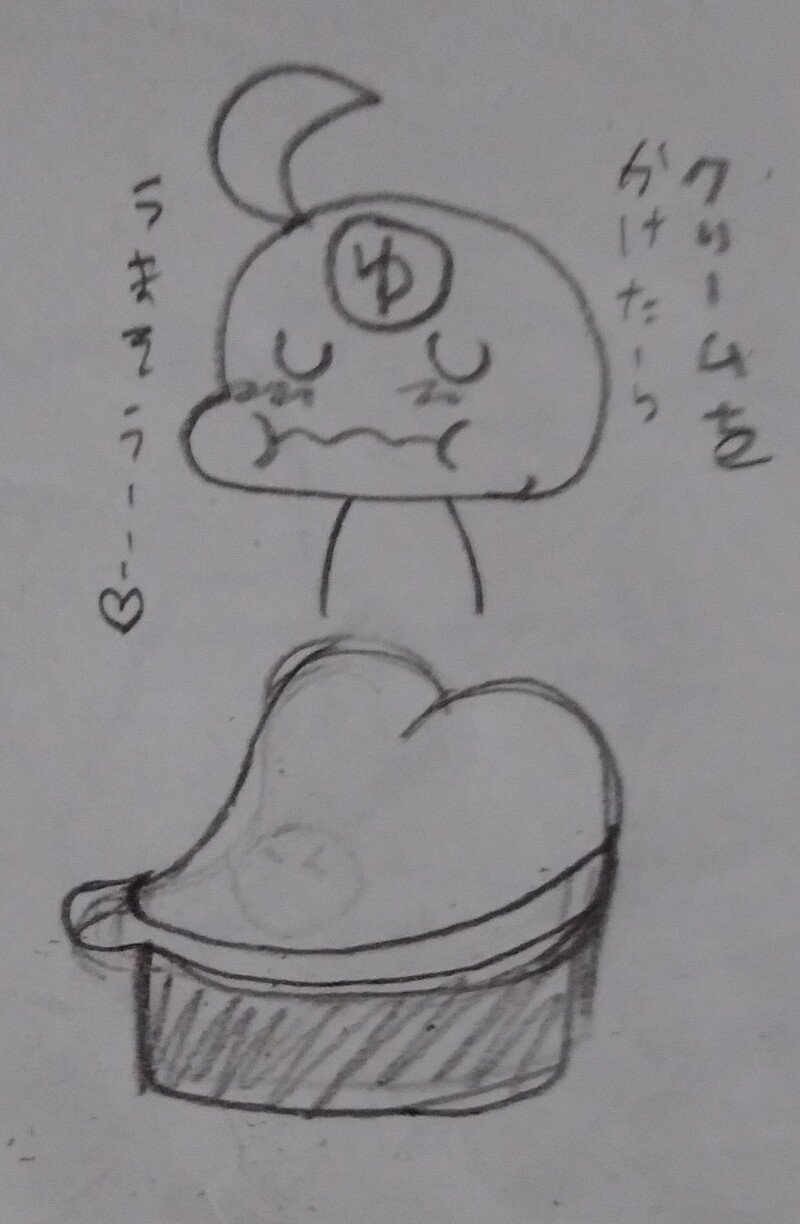 クリームを
かけたら
うまそうー…♡
ゆ